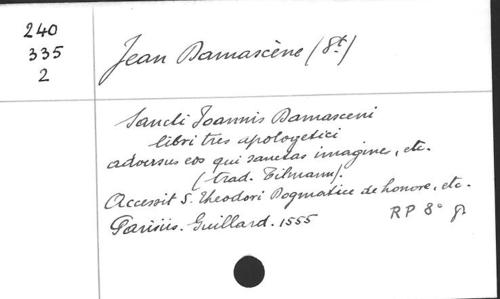 240
335
2
Jean Damascène (St.)
Sancti Joannis Damasceni
libri tres apologetici
adversus eos qui sanctas imagines, etc.
(trad. Tilmann).
Accessit S. Theodori Dogmatice de honore, etc.
Parisiis. Guillard. 1555
RP 8°